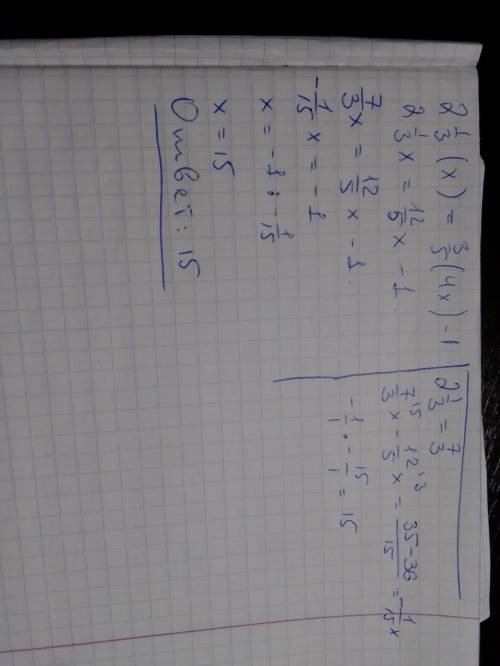 2 1/3 (x) = 3/5 (4x) - 1
2 1/3 x = 12/5 x - 1.
7/3 x = 12/5 x - 1.
-1/15 x = -1
x = -1 : -1/15
x = 15
Ответ: 15
2 1/3 = 7/3
7/3 \5 x - 12/5 \3 x = 35-36/15 = -1/15 x
-1/1 : -15/1 = 15